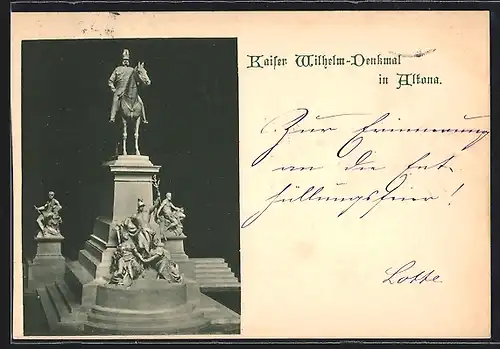 Kaiser Wilhelm-Denkmal
in Altona.
Zur Erinnerung
an die Ent-
hüllungsfeier!
Lotte